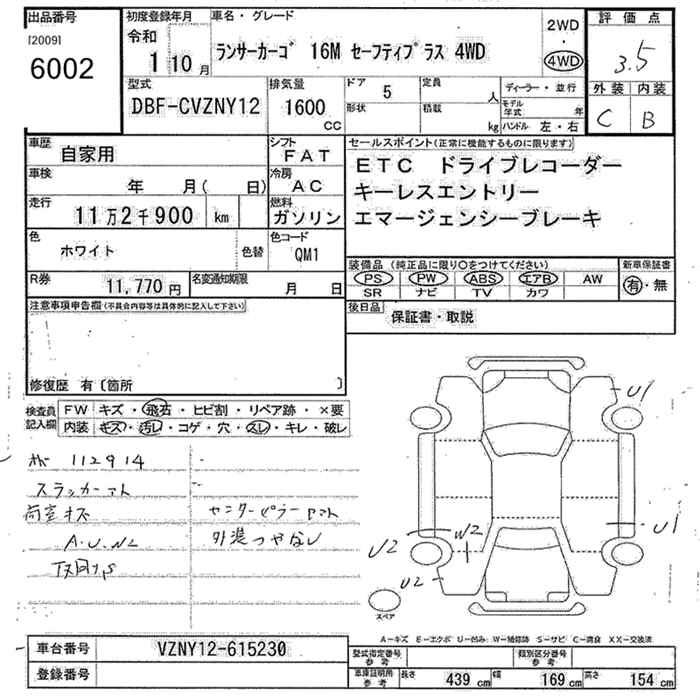 出品番号
[2009]
6002
初度登録年月
令和
1 10 月
車名・グレード
ランサーカーゴ 16M セーフティプラス 4WD
2WD
・
4WD
評価点
3.5
外装 内装
C B
型式
DBF-CVZNY12
排気量
1600
CC
ドア 5
定員 人
形状
積載 kg
ディーラー・並行
モデル年式 年
ハンドル 左・右
車歴
自家用
シフト
FAT
車検
年 月( 日)
冷房
AC
走行
11万2千900 km
燃料
ガソリン
色
ホワイト
色替
色コード
QM1
R券
11,770 円
名変通知期限
月 日
セールスポイント(正常に機能するものに限ります)
ETC ドライブレコーダー
キーレスエントリー
エマージェンシーブレーキ
装備品 (純正品に限り○をつけてください)
PS PW ABS エアB AW
SR ナビ TV カワ
新車保証書
有・無
後日品
保証書・取説
注意事項申告欄(不具合内容等は具体的に記入して下さい)
修復歴 有〔箇所 〕
検査員
記入欄
FW キズ・飛石・ヒビ割・リペア跡・×要
内装 キズ・汚レ・コゲ・穴・スレ・キレ・破レ
112914
スラッカーアト
荷室キズ
センターピラー
A.U.W2
外装つやなし
U1
U1
U2
W2
U2
スペア
A－キズ E－エクボ U－凹み W－補修跡 S－サビ C－腐食 XX－交換済
車台番号
VZNY12-615230
登録番号
型式指定番号
参考
類別区分番号
参考
車庫証明用
参考
長さ 439 cm
幅 169 cm
高さ 154 cm